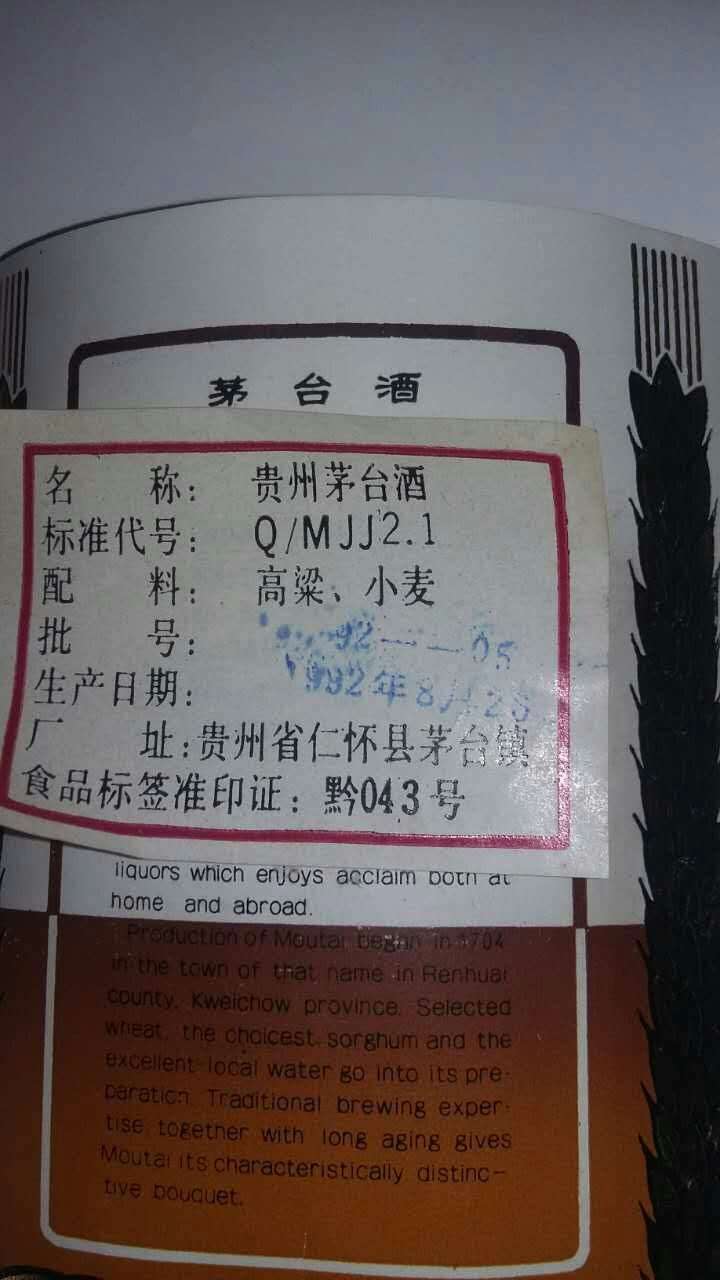 茅台酒
名 称: 贵州茅台酒
标准代号: Q/MJJ2.1
配 料: 高粱、小麦
批 号: 92——05
生产日期: 1992年8月
厂 址:贵州省仁怀县茅台镇
食品标签准印证:黔043号
liquors which enjoys acclaim both at
home and abroad.
Production of Moutai began in 1704
in the town of that name in Renhuai
county, Kweichow province. Selected
wheat, the choicest sorghum and the
excellent local water go into its pre-
paration. Traditional brewing exper-
tise together with long aging gives
Moutai its characteristically distinc-
tive bouquet.